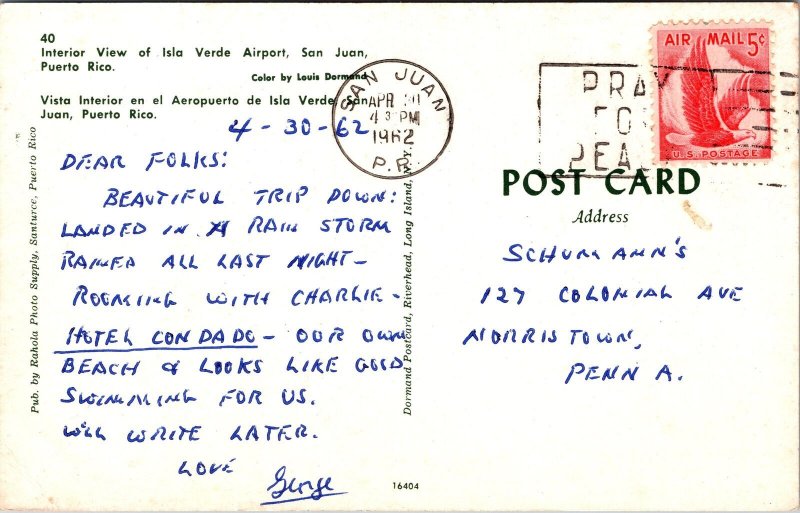 40
Interior View of Isla Verde Airport, San Juan,
Puerto Rico.
Color by Louis Dormand
Vista Interior en el Aeropuerto de Isla Verde, San
Juan, Puerto Rico.
4-30-62
DEAR FOLKS:
BEAUTIFUL TRIP DOWN:
LANDED IN A RAIN STORM
RAINED ALL LAST NIGHT-
ROOMING WITH CHARLIE-
HOTEL CONDADO- OUR OWN
BEACH & LOOKS LIKE GOOD
SWIMMING FOR US.
WILL WRITE LATER.
LOVE
George
Pub. by Rahola Photo Supply, Santurce, Puerto Rico
Dormand Postcard, Riverhead, Long Island, N.Y.
16404
SAN JUAN
APR 30
PM
1962
P.R.
PRAY
FOR
PEACE
AIR MAIL 5¢
U.S. POSTAGE
POST CARD
Address
SCHUMANN'S
127 COLONIAL AVE
NORRISTOWN,
PENN A.